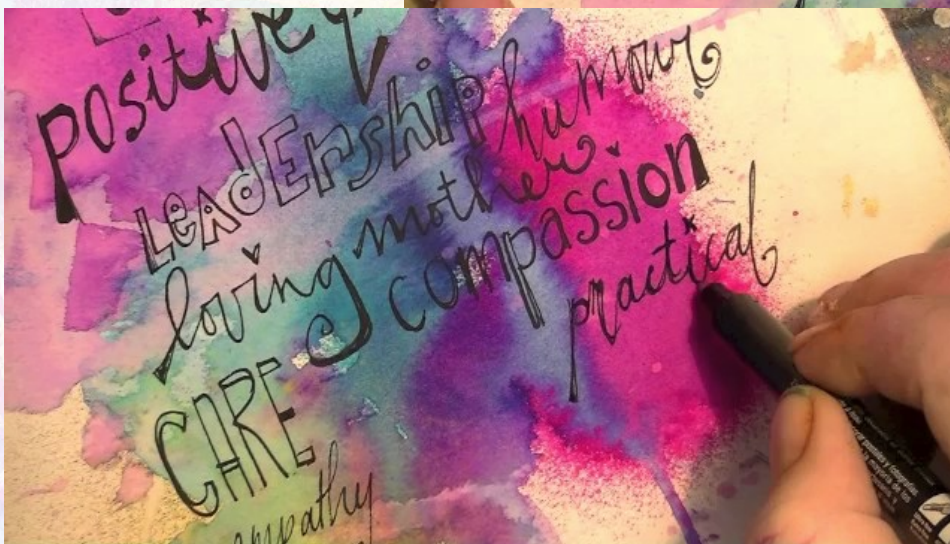 positive
LEADERship humour
loving mother
compassion
practical
CARE
empathy